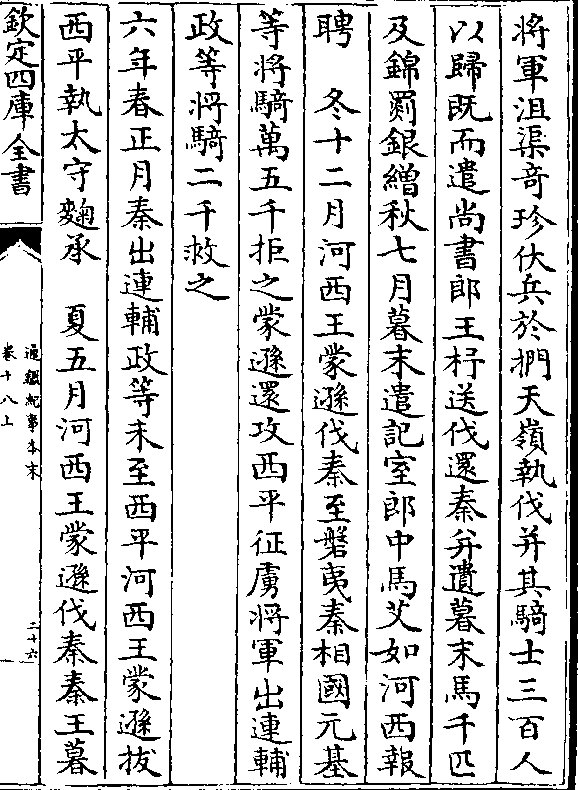 將軍沮渠竒珍伏兵於捫天嶺執伐并其騎士三百人
以歸既而遣尚書郎王杼送伐還秦并遺暮末馬千匹
及錦罽銀繒秋七月暮末遣記室郎中馬艾如河西報
聘　冬十二月河西王蒙遜伐秦至磐夷秦相國元基
等將騎萬五千拒之蒙遜還攻西平征虜將軍出連輔
政等將騎二千救之
六年春正月秦出連輔政等未至西平河西王蒙遜拔
西平執太守麴承　夏五月河西王蒙遜伐秦秦王暮
欽定四庫全書
通鑑紀事本末
卷十八上
二十六